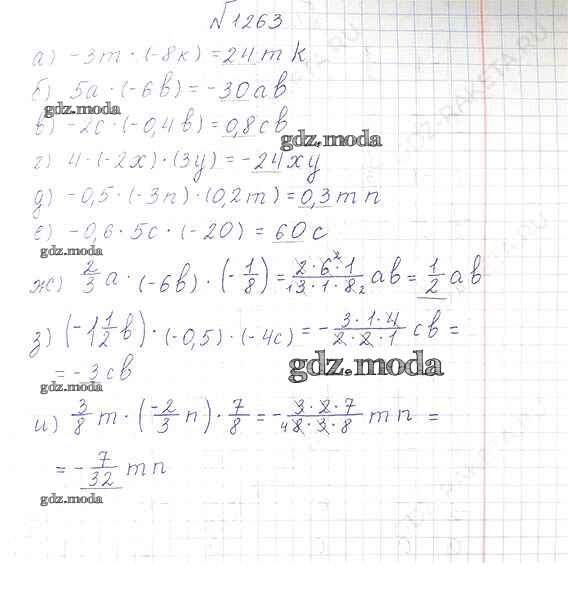 №1263
а) -3m · (-8k) = 24 m k
б) 5a · (-6b) = -30 ab
gdz.moda
в) -2c · (-0,4b) = 0,8 cb
gdz.moda
г) 4 · (-2x) · (3y) = -24xy
д) -0,5 · (-3n) · (0,2m) = 0,3 m n
е) -0,6 · 5c · (-20) = 60 c
gdz.moda
ж) 2/3 a · (-6b) · (-1/8) = 2·6·1/3·1·8 ab = 1/2 ab
з) (-1 1/2 b) · (-0,5) · (-4c) = - 3·1·4/2·2·1 cb =
= -3cb
gdz.moda
и) 3/8 m · (-2/3 n) · 7/8 = - 3·2·7/8·3·8 m n =
= - 7/32 m n
gdz.moda
GDZ-RAKETA.RU